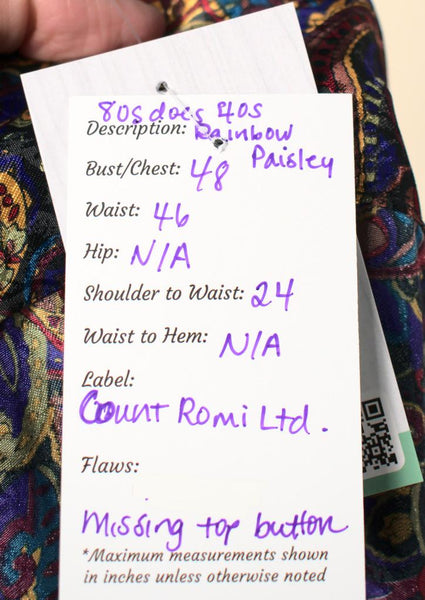 80s does 40s
Description: Rainbow
Paisley
Bust/Chest: 48
Waist: 46
Hip: N/A
Shoulder to Waist: 24
Waist to Hem: N/A
Label:
Count Romi Ltd.
Flaws:
Missing top button
*Maximum measurements shown
in inches unless otherwise noted